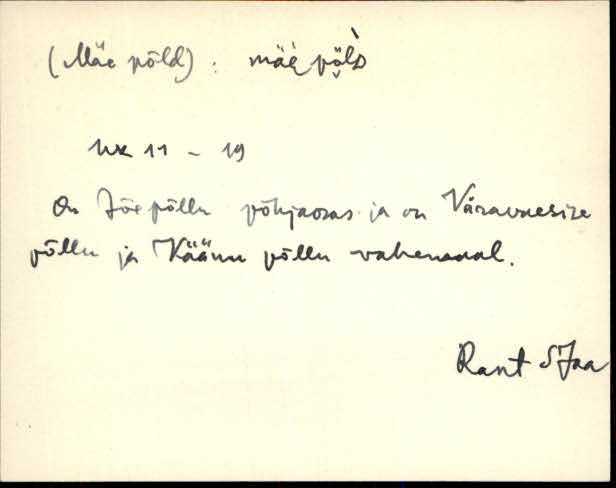 (Mäe põld) : mäè põlD
11 - 19
On Jõe põllu põhjaosas ja on Väravaesize
põllu ja Käänu põllu vahemaal.
Rant SJaa